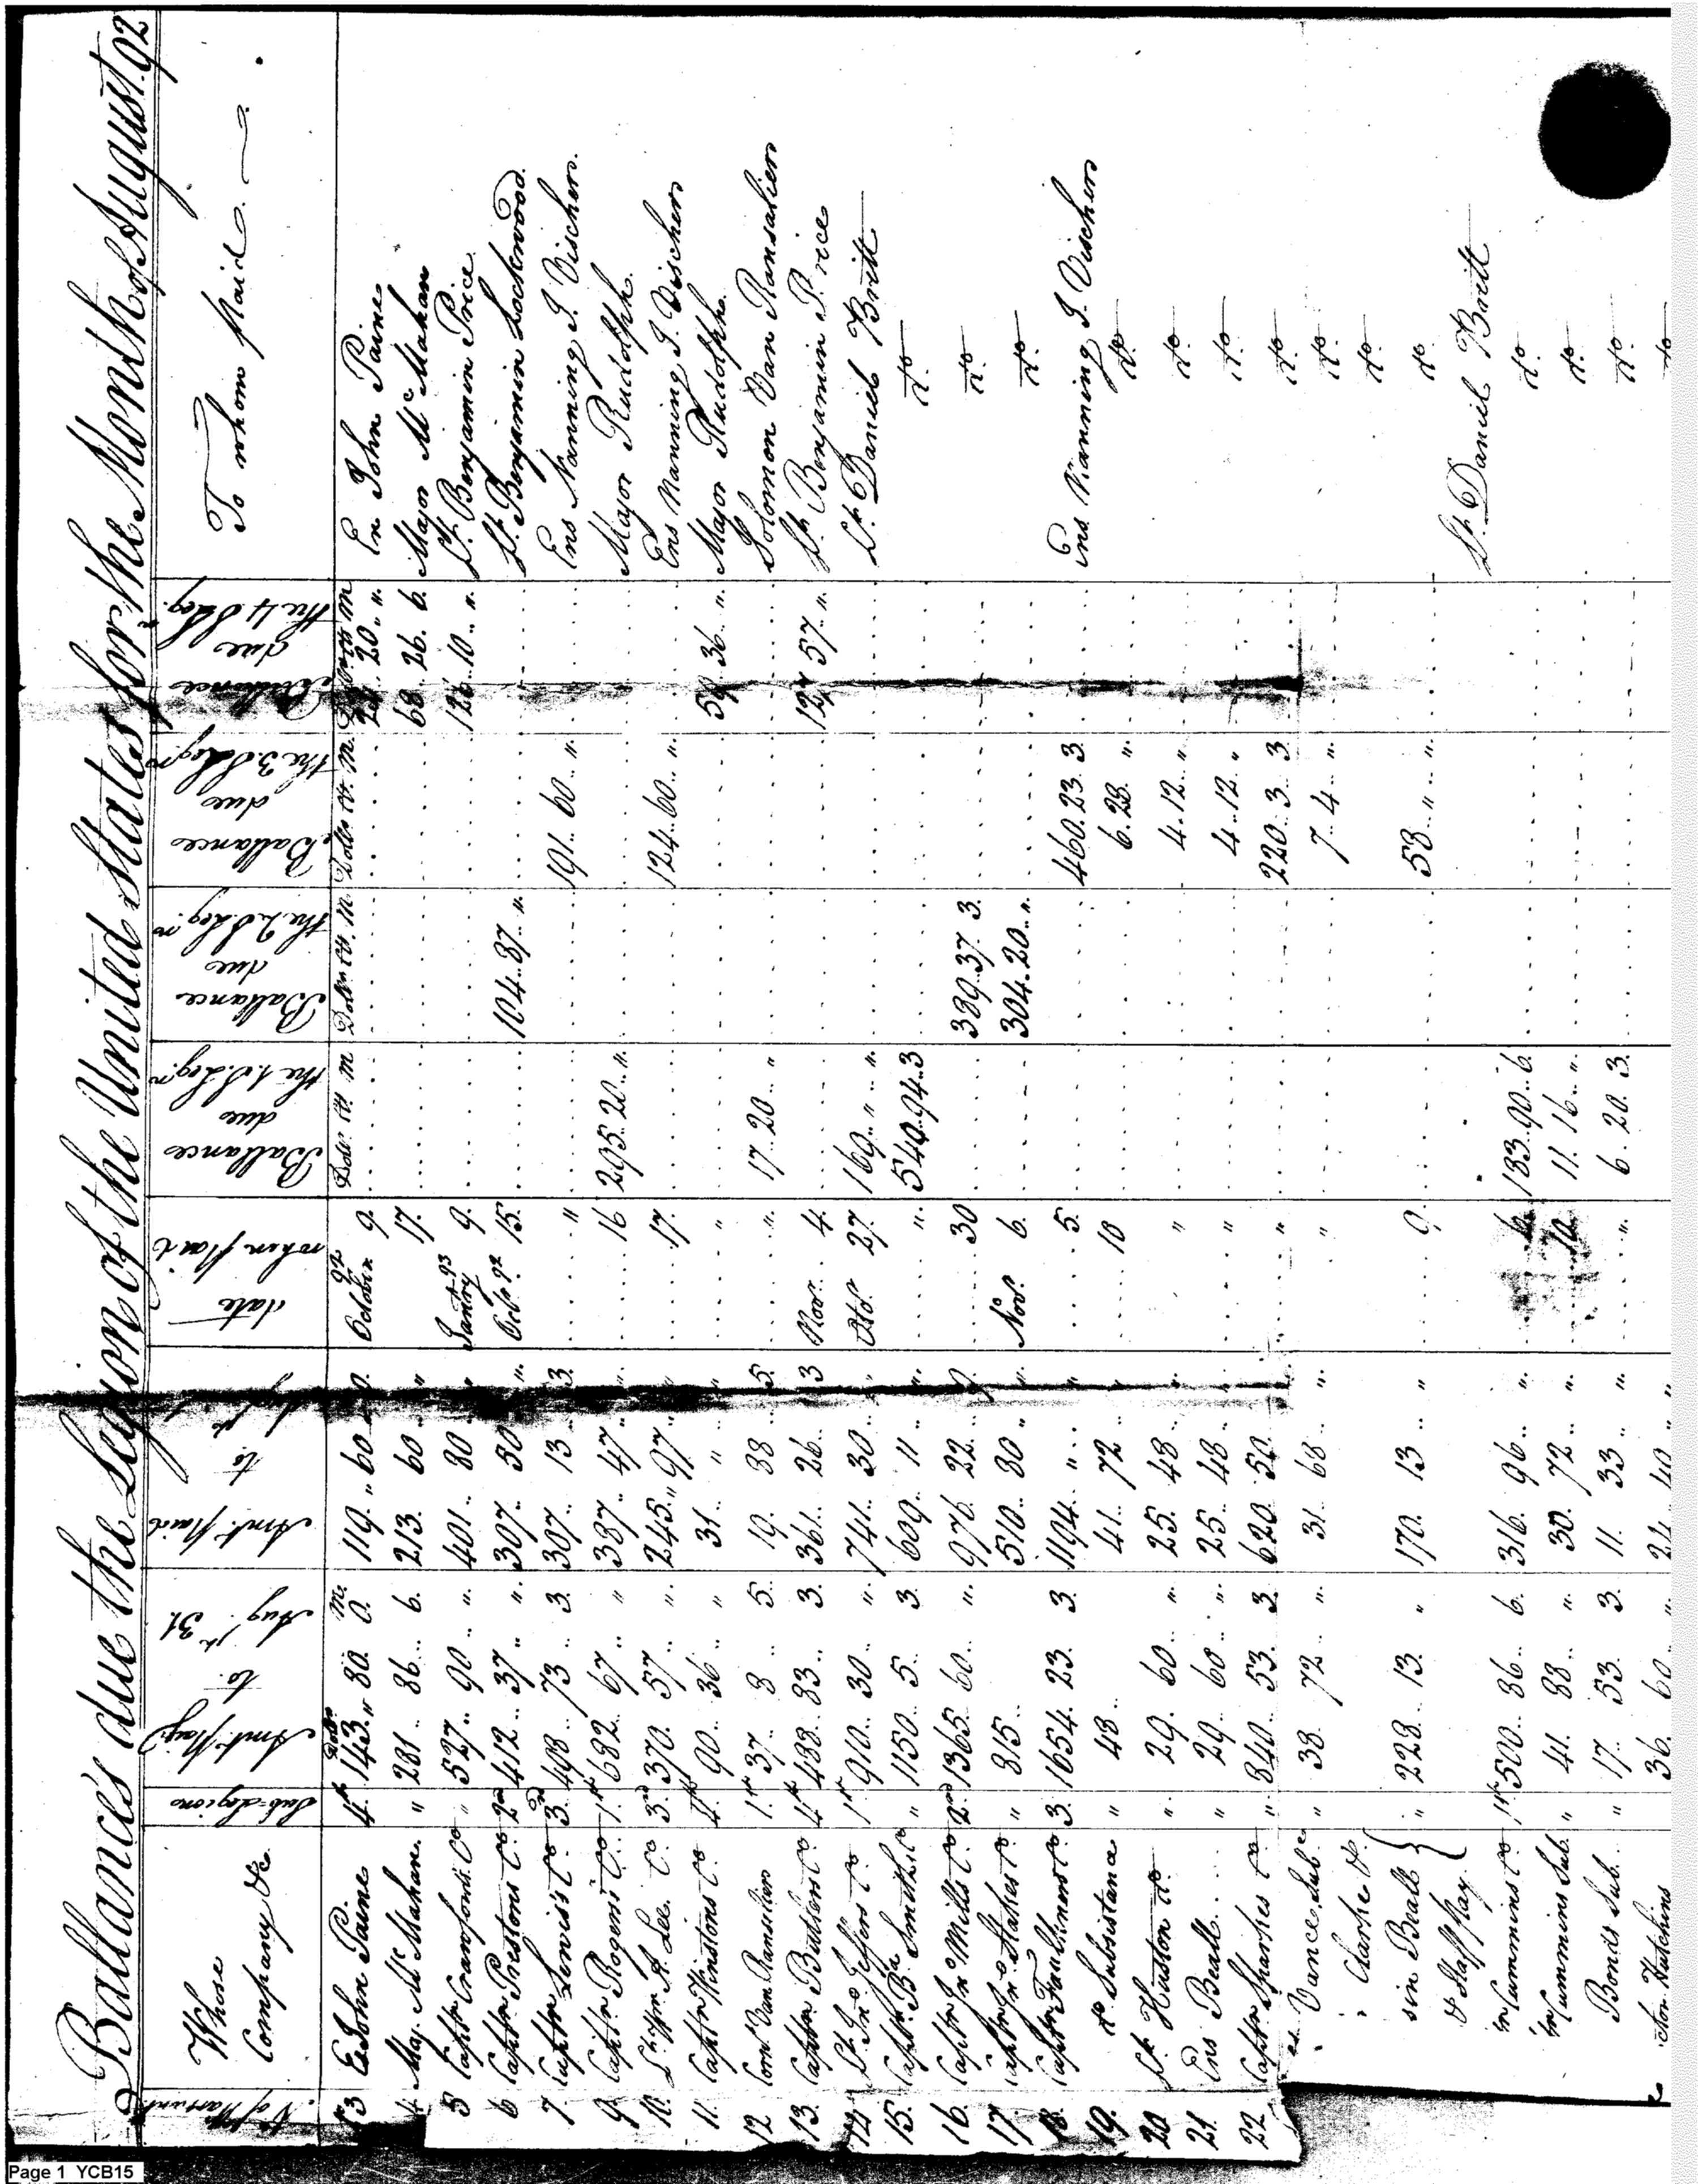 Ballances due the Legion of the United States for the Month of August. 92
No of Warrant Whose Company &c. Sub=Legions Amt. Pay. to 31 Augt. Amt. paid to date when paid Ballance due the 1. S Legn. Ballance due the 2. S Legn. Ballance due the 3. S Legn. Ballance due the 4. S Leg. To whom paid
Dolls. M. Dolls. Ct. M Dolls. Ct. M. Dolls Ct. M. Cts M
3 En John Paine 4th 143 " 80. 0. 119. " 60 0. October 92 9. 20 " En John Paine
4 Maj. McMahan " 281 " 86 .. 6. 213. 60 .. " 17. 68 .. 26. 6. Major McMahan
5 Captn. Crawfords Co " 527 .. 90 .. ". 401 .. 80 .. " January 93 9. 126 .. 10 .. ". Lt. Benjamin Price.
6 Captn. Prestons Co. 2nd 412 .. 37 .. ". 307 .. 50 .. ". Octr. 92 15. 104..87.. ". Lt. Benjamin Lockwood.
7. Captn Lewis's Co. 3rd 498 .. 73 .. 3. 307 .. 13 .. 3. " 191.. 60 .. ". Ens Nanning J. Vischer.
9. Captn. Rogers Co. 1st 682 .. 67 .. " 387 .. 47 .. ". 16 295. 20 .. ". Major Rudolph.
10. Lt. Wm. A. Lee. Co. 3d 370. 57 .. ". 245 .. 97 .. ". 17. 124..60.. ". Ens Nanning J. Vischer
11. Captn Winstons Co 4th 90 .. 36 .. " 31 .. " .. " " 59 .. 36 .. ". Major Rudolph.
12 Cornt. Van Ranselier 1st 37 .. 8 .. 5. 19. 88 .. 5. ". 17.. 20.. " Solomon Van Ransalier
13. Captn. Butlers Co. 4th 488.. 83 .. 3. 361 .. 26 .. 3 Novr. 4. 127 57 .. ". Lt. Benjamin Price
14 Lt. Jno. Jeffers Co. 1st 910 .. 30 .. ". 741 .. 30 .. " Octr. 27. 169 .. " .. ". Lt. Daniel Britt
15. Captn. Bn. Smiths Co " 1150 .. 5 .. 3. 609 .. 11 .. ". ". 540..94..3 do
16. Captn Jno Mills Co. 2nd 1365. 60 .. ". 976. 22 .. 9. 30 389..37. 3. do.
17. Captn. Jno Stakes Co. " 815 .. 510 .. 80 .. ". Novr. 6. 304. 20 .. ". do.
18. Captn. Faulkners Co. 3. 1654. 23. 3. 1194 .. " .. " 5. 460. 23. 3. Ens. Nanning J. Vischer
19. do Subsistance " 48 .. 41 .. 72 .. " 10 6. 28. ". do.
20 Lt. Huston do. ". 29. 60 .. ". 25. 48 .. ". " 4. 12 .. ". do.
21. Ens Beall .... " 29 .. 60 .. ". 25 .. 48 .. ". " 4.. 12. " do.
22 Captn. Sharpes Co. ". 840 .. 53. 3. 620 50 .. ". " 220. 3. 3 do.
Vance Sub. " 38. 72 .. ". 31. 68 .. ". " 7.. 4.. ". do.
Clarke & do.
sin Bealls " 228 .. 13. " 170. 13 .. " 9. 58 .. " .. ". do
& Staff Pay
Cummins Co. 1st 500 .. 86 .. 6. 316. 96 .. ". 6. 183.. 90.. 6. Lt. Daniel Britt
Cummins Sub. " 41. 88 .. ". 30. 72 .. ". 10. 11. 16 .. ". do.
Bonds Sub. " 17 .. 53. 3. 11. 33 .. ". " 6. 20. 3. do.
ctor. Hutchins 36. 60 .. ". 24. 40 .. " do
Page 1 YCB15